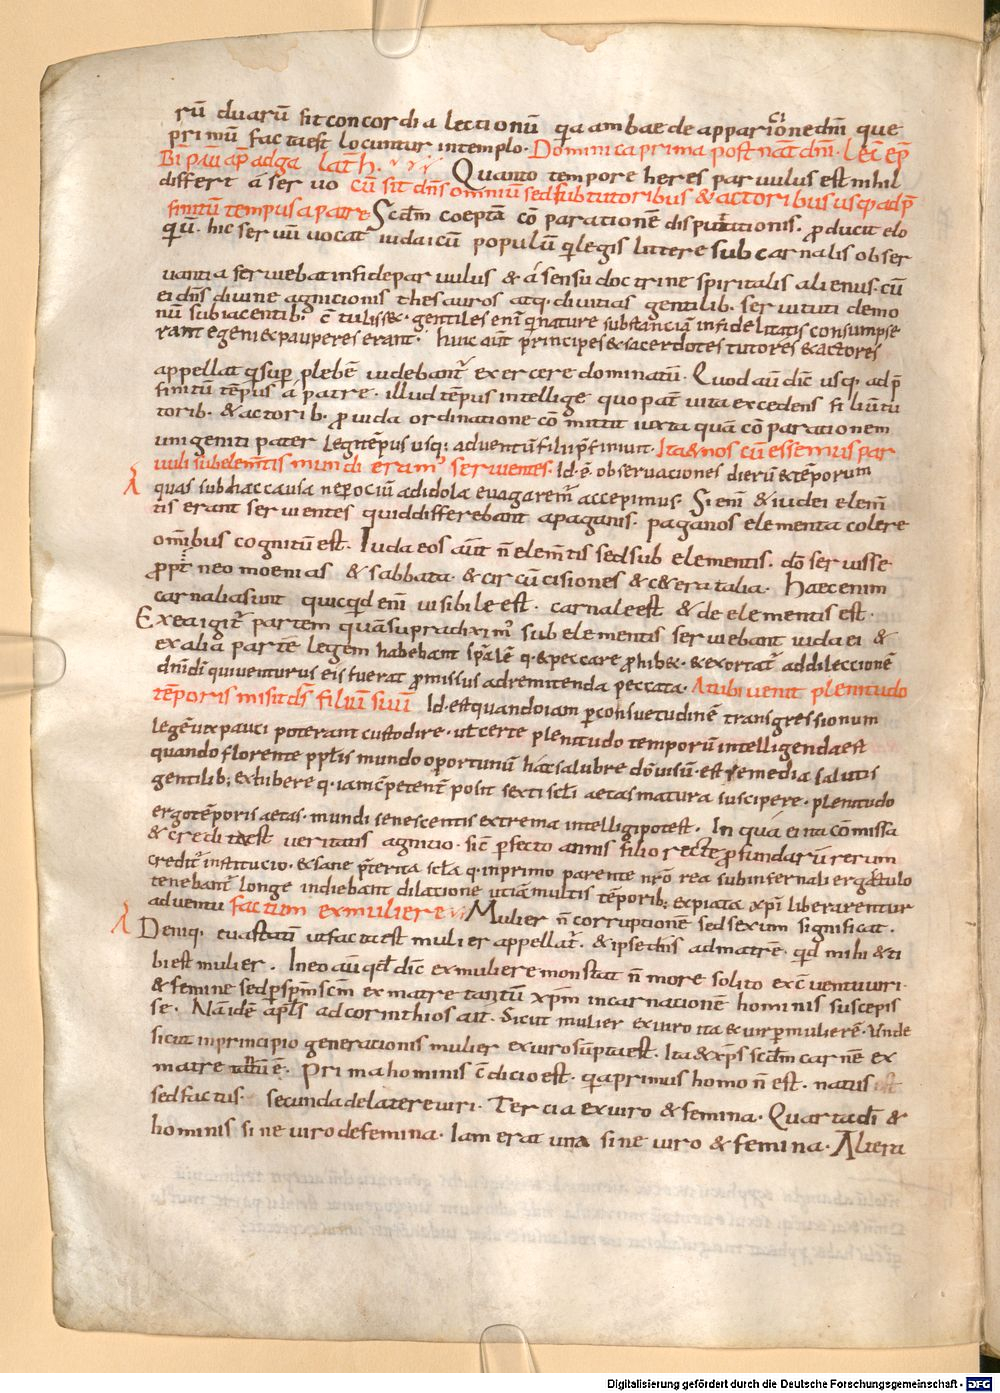 rū duarū sit concordia lectionū q̄a ambae de apparicione dn̄i que
primū facta est locuntur in templo. Dominica prima post nat̄ dn̄i. Lec̄ ep̄
Bi pauli ap̄ ad gaLath. Quanto tempore heres parvulus est nihil
differt á servo cū sit dn̄s omniū sed sub tutoribus & actoribus usq; ad p̄
finitū tempus a patre Scd̄m coeptā cōparationē disputationis. producit elo
qiū. hic servū vocat iudaicū populū q̄ legis littere sub carnalis obser
vantia serviebat in fide parvulus & á sensu doctrine spiritalis alienus. cū
ei dn̄s divine agnicionis thesauros atq. divitias gentilib. servituti demo
nū subiacentib; c̄tulisse&. gentiles enī q̄ nature substanciā infidelitatis consumpse
rant egeni & pauperes erant. hunc aut̄ principes & sacerdotes tutores & actores
appellat q̄ sup̄ plebē videbant̄ exercere dominatū. Quod aū dic̄ usq. ad p̄
finitū tēpus á patre. illud tēpus intellige quo pat̄ vita excedens filiū tu
torib. & actorib. provida ordinatione cōmittit iuxta quā cōparationem
unigeniti pater legit tēpus usq; adventū filii p̄finivit. Ita & nos cū essemus par
vuli sub elem̄tis mundi eram̄ servientes. Id. ē. observaciones dierū & tēporum
quas sub hac causa ne p̄ ociū ad idola evagarem̄ accepimus. Si enī & iudei elem̄
tis erant servientes quid differebant a paganis. paganos elementa colere
om̄ibus cognitū est. Iudaeos aūt n̄ elem̄tis sed sub elementis. dō servisse
propt̄ neomoenias & sabbata. & circūcisiones & c&era talia. Haec enim
carnalia sunt quicq̄d enī visibile est. carnale est & de elementis est.
Ex ea igit̄ partem quā supra dixim̄ sub elementis serviebant iudaei &
ex alia parte legem habebant sp̄alē q. & peccare prohibe&. & exortat̄ ad dileccionē
dn̄i dī qui venturus eis fuerat promissus ad remitenda peccata. At ubi venit plenitudo
tēporis misit ds̄ filiū suū Id. est quandoiam p̄ consuetudinē transgressionum
legē vix pauci poterant custodire. ut certe plenitudo temporū intelligenda est
quando florente pplis mundo oportunū hāc salubre dō visū. est remedia salutis
gentilib; exhibere q. iam c̄petenter posit sexti scl̄i aetas matura suscipere. plenitudo
ergo tēporis aetas. mundi senescentis extrema intelligi potest. In qua ei ita cōmissa
& credita est veritatis agnicio. sic̄ p̄fecto annis filio recte profundarū rerum
credit̄ institucio. & sane p̄terita scl̄a q. in primo parente nr̄o rea sub infernali ergastulo
tenebant̄ longe indiebant dilatione ut iā multis tēporib; expiata xp̄i liberarentur
adventu factum ex muliere Mulier n̄ corruptionē sed sexum significat.
Deniq. eva statū ut facta est mulier appellat̄. & ipse dn̄s ad matrē. q̄d mihi & ti
bi est mulier. In eo aū qd̄ dic̄ ex muliere monstrat n̄ more solito exc̄ventu viri.
& femine sed p̄ sp̄m scm̄ ex matre tantū xp̄m incarnationē hominis suscepis
se. Nā idē apl̄s ad corinthios ait. Sicut mulier ex viro ita & vir p̄ mulierē. Unde
sicut in principio generationis mulier ex viro sūpta est. Ita & xp̄s scd̄m carnē ex
matre natus ē. Prima hominis c̄dicio est. q̄a primus homo n̄ est. natus
sed factus. secunda de latere viri. Tercia ex viro & femina. Quarta dī &
hominis sine viro de femina. Iam erat una sine viro & femina. Altera
Digitalisierung gefördert durch die Deutsche Forschungsgemeinschaft - DFG